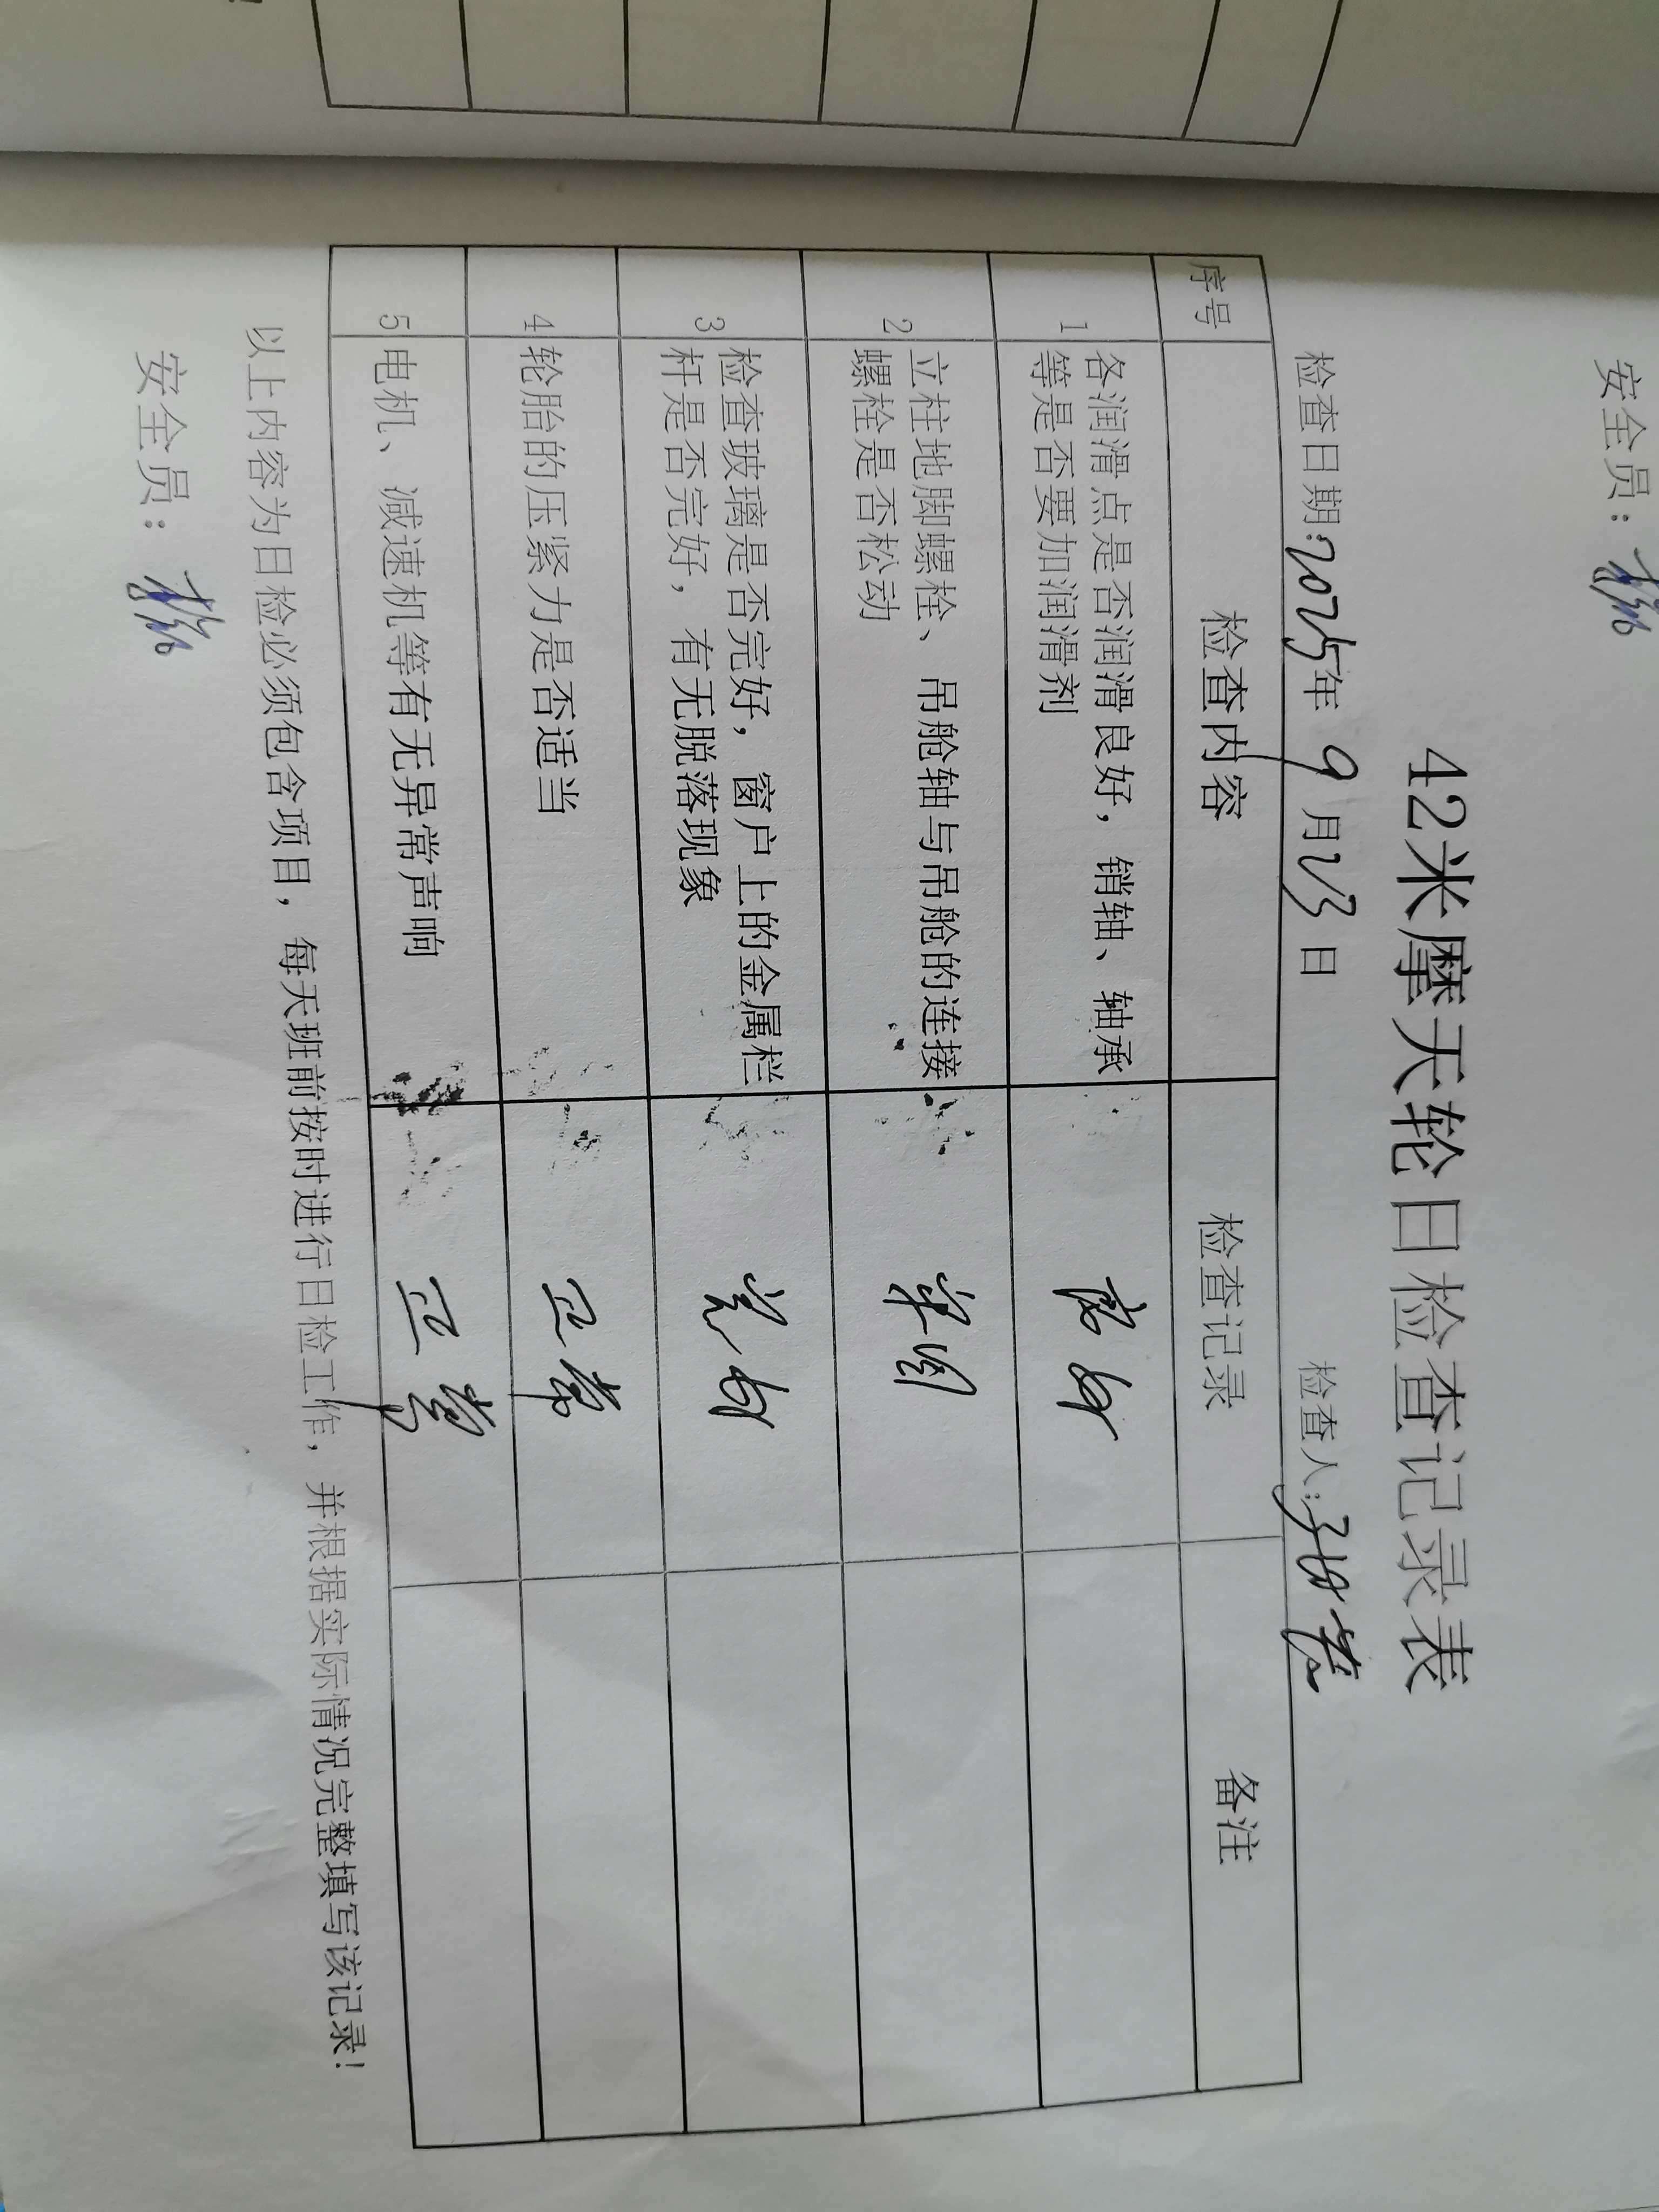 42米摩天轮日检查记录表
检查日期:2025年 9月23日 检查人:
序号 检查内容 检查记录 备注
1 各润滑点是否润滑良好，销轴、轴承
等是否要加润滑剂 良好
2 立柱地脚螺栓、吊舱轴与吊舱的连接
螺栓是否松动 牢固
3 检查玻璃是否完好，窗户上的金属栏
杆是否完好，有无脱落现象 完好
4 轮胎的压紧力是否适当 正常
5 电机、减速机等有无异常声响 正常
以上内容为日检必须包含项目，每天班前按时进行日检工作，并根据实际情况完整填写该记录！
安全员：
安全员：